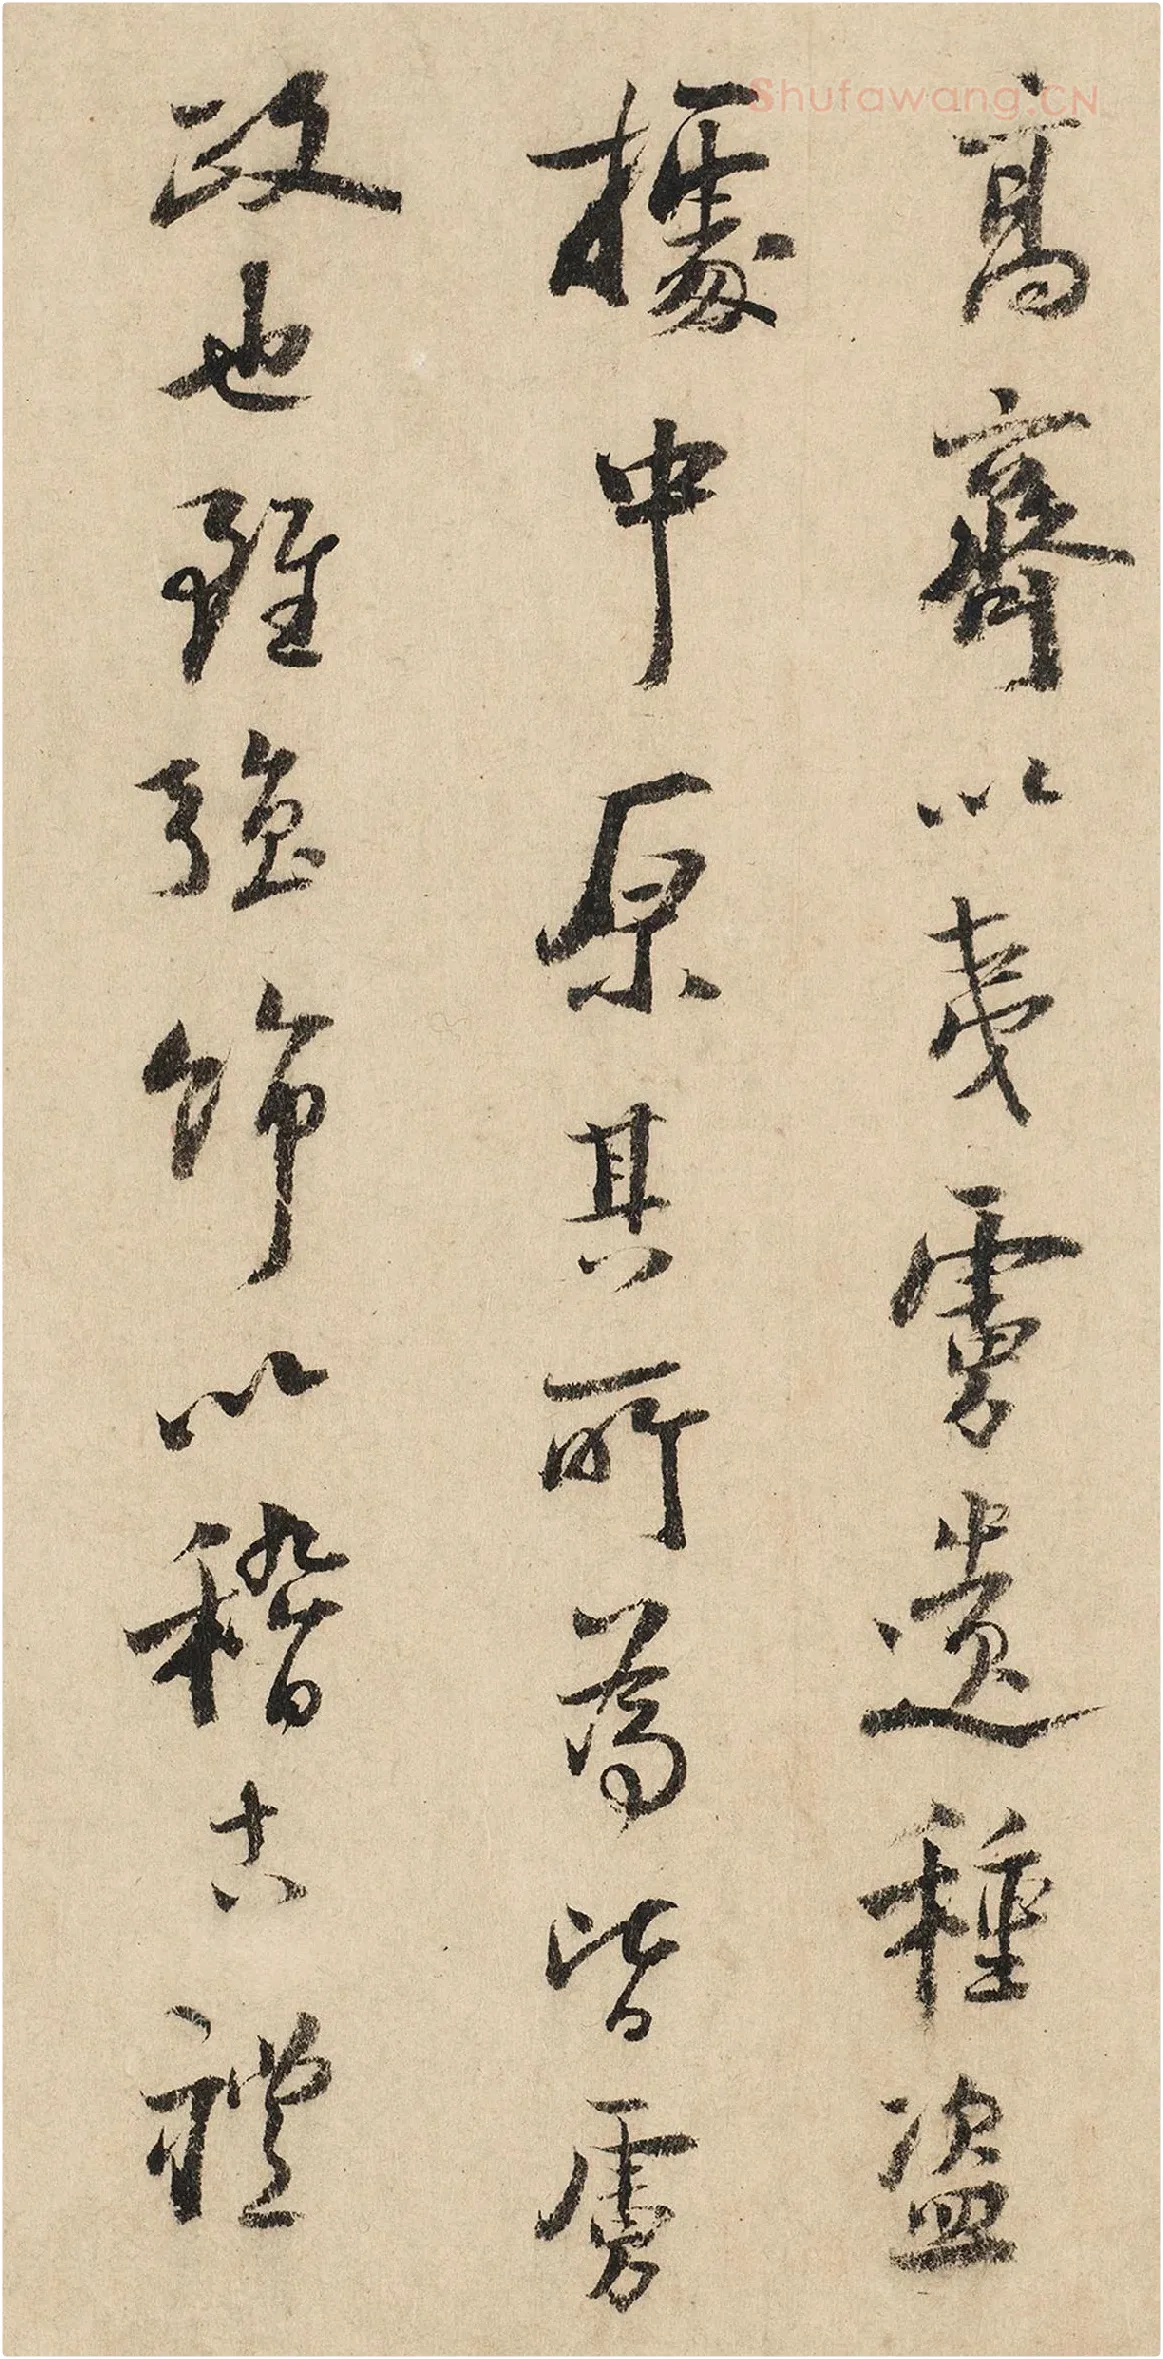 高齊以夷虜遺種盜
據中原其所為皆虜
政也雖強飾以稽古禮
Shufawang.CN